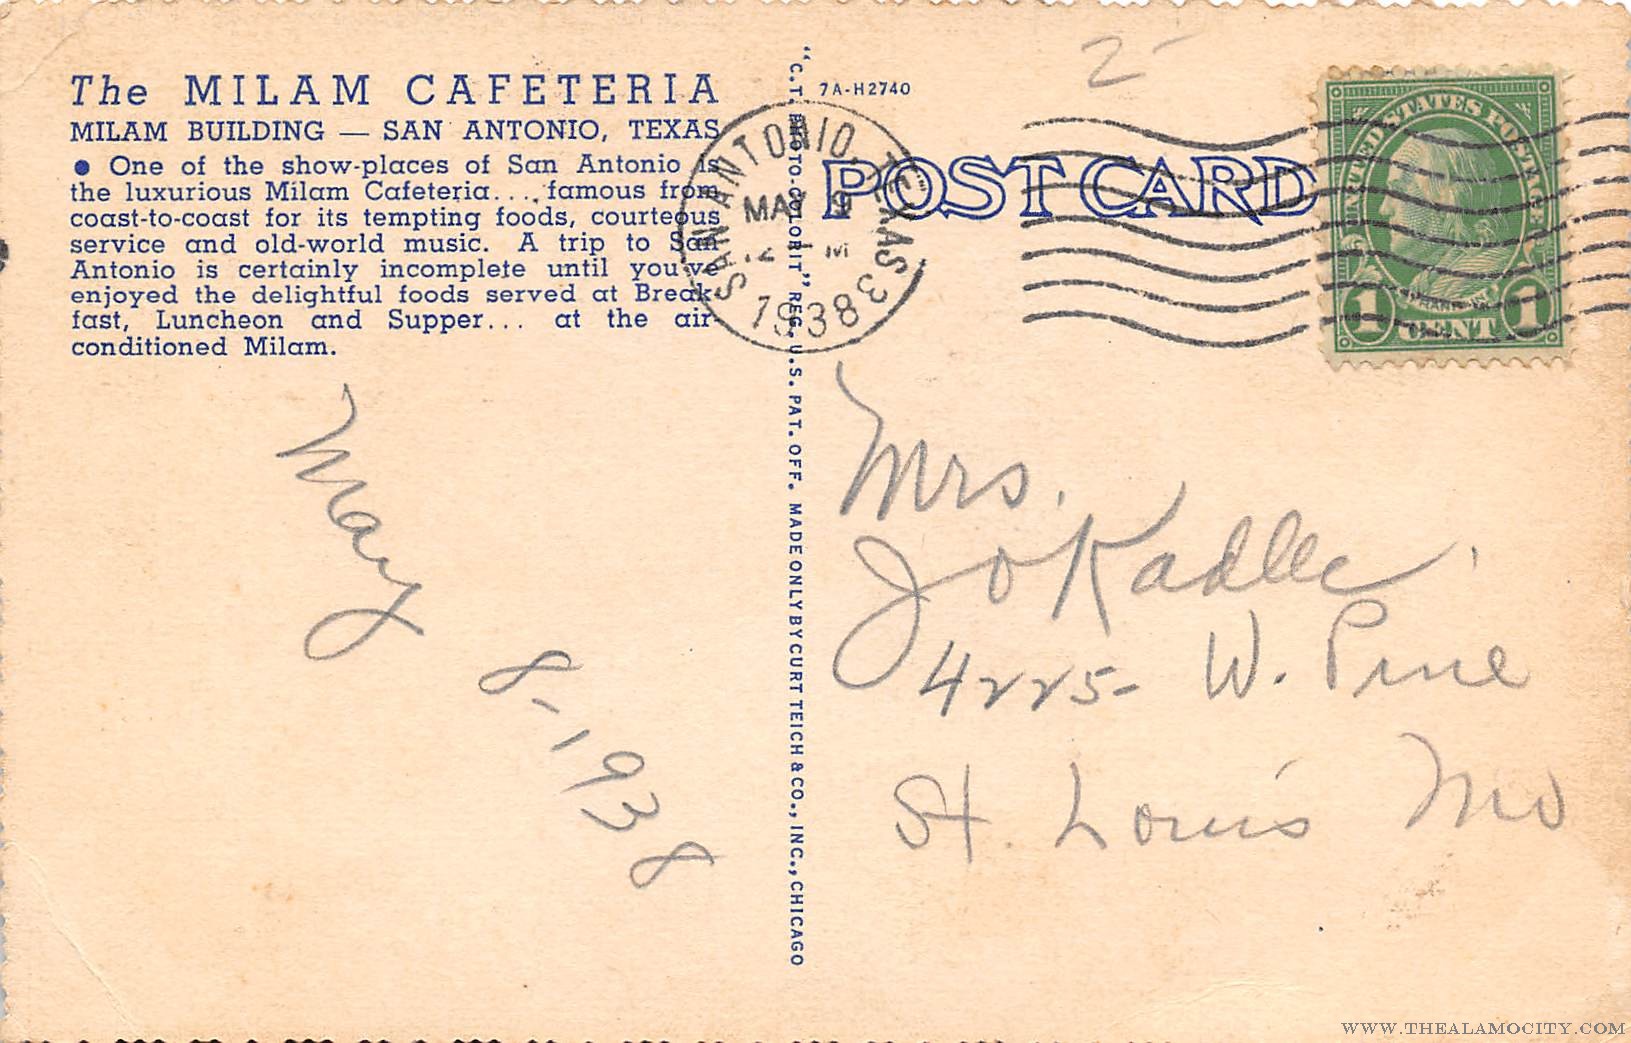 The MILAM CAFETERIA
MILAM BUILDING — SAN ANTONIO, TEXAS
● One of the show-places of San Antonio is
the luxurious Milam Cafeteria.... famous from
coast-to-coast for its tempting foods, courteous
service and old-world music. A trip to San
Antonio is certainly incomplete until you've
enjoyed the delightful foods served at Break-
fast, Luncheon and Supper... at the air-
conditioned Milam.
May
8-1938
"C.T. PHOTO-COLORIT" REG. U.S. PAT. OFF. MADE ONLY BY CURT TEICH & CO., INC., CHICAGO
7A-H2740
POST CARD
2-
SAN ANTONIO, TEXAS 3
MAY 9
12 M
1938
UNITED STATES POSTAGE
FRANKLIN
1 CENT 1
Mrs.
Jo Kadlec
4225- W. Pine
St. Louis Mo
WWW.THEALAMOCITY.COM